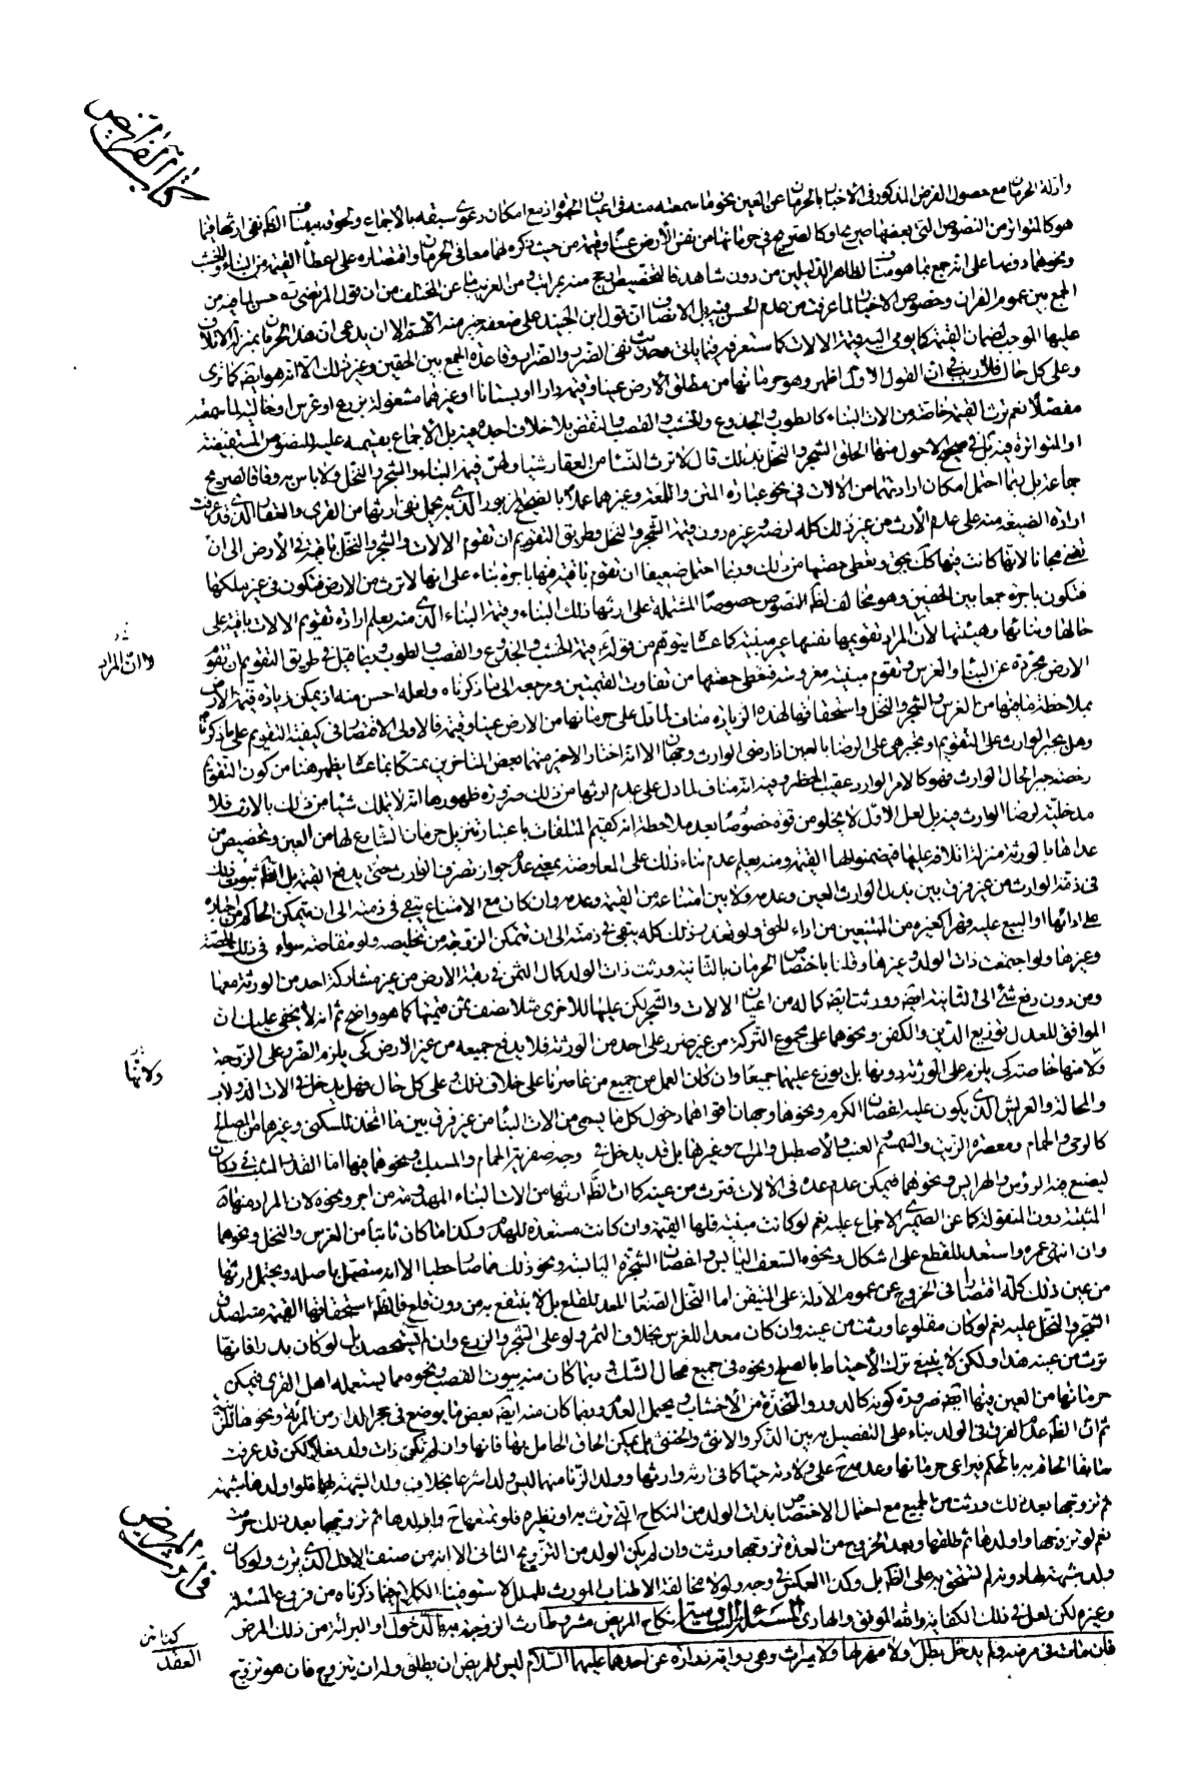 كتاب الفرائض
وادلة الحرمان مع حصول الفرض المذكور في الاخبار بالحرمان عن العين نحو ما سمعته منه في اعيان الحبوة مع امكان دعوى سبقه بالاجماع ولحوقه به
هو كالمتواتر من النصوص التي بعضها صريح او كالصريح في حرمانها من نفس الأرض عينا وقيمة من حيث ذكره لهما معا في الحرمان واقتصاره على اعطاء القيمة من البناء والخشب
ونحوهما دونها على انه جمع بما هو مناف لظاهر الدليلين من دون شاهد فالتخصيص ارجح منه بمراتب ومن الغريب ما عن المختلف من ان قول المرتضى ره حسن لما فيه من
الجمع بين عموم القران وخصوص الاخبار لما عرفت من عدم الحسن فيه بل الانصاف ان قول ابن الجنيد على ضعفه خير منه اللهم الا ان يدعى ان هذا الحرمان بمنزلة الاتلاف
عليها الموجب لضمان القيمة كما يومي اليه قيمة الالات كما ستعرفه فيما ياتي وحديث نفي الضرر والضرار وقاعدة الجمع بين الحقين وغير ذلك الا انه هو ايضا كما ترى
وعلى كل حال فلا ريب في ان القول الاول اظهر وهو حرمانها من مطلق الأرض عينا وقيمة دارا او بستانا او غيرهما مشغولة بزرع او غرس او خالية لما سمعته
مفصلا نعم ترث القيمة خاصة من الات البناء كالطوب والجذوع والخشب والقصب والنقض بلا خلاف اجده فيه بل الاجماع بقسميه عليه للنصوص المستفيضة
او المتواترة فيه بل في صحيح الاحول منها الحاق الشجر والنخل بذلك قال لا ترث النساء من العقار شيئا ولهن قيمة البناء والشجر والنخل ولا باس به وفاقا لصريح
جماعة بل ربما احتمل امكان ارادتهما من الالات في نحو عبارة المتن واللمعة وغيرهما عملا بالصحيح المزبور الذي به يحمل نفي ارثها من القرى والعقار الذي قد عرفت
ارادة الضيعة منه على عدم الأرث من عين ذلك كله ارضه وغيره دون قيمة الشجر والنخل وطريق التقويم ان تقوم الالات والشجر والنخل باقية في الأرض الى ان
تفنى مجانا لانها كانت فيها كك بحق وتعطى حصتها من ذلك وربما احتمل ضعيفا ان تقوم باقية فيها باجرة بناء على انها لا ترث من الارض فتكون في غير ملكها
فتكون باجرة جمعا بين الحقين وهو مخالف لظاهر النصوص خصوصا المشتملة على ارثها ذلك البناء وقيمة البناء الذي منه يعلم ارادة تقويم الالات باقية على
حالها وبنائها وهيئتها لا ان المراد تقويمها بنفسها غير مبنية كما عساه يتوهم من قوله ع قيمة الخشب والجذوع والقصب والطوب وربما قيل في طريق التقويم ان تقوم
الارض مجردة عن البناء والغرس وتقوم مبنية مغروسة فتعطى حصتها من تفاوت القيمتين ومرجعه الى ما ذكرناه ولعله احسن منه اذ يمكن زيادة قيمة الارض
بملاحظة ما فيها من الغرس والشجر والنخل واستحقاقها لهذه الزيادة مناف لما دل على حرمانها من الارض عينا وقيمة فالاولى الاقتصار في كيفية التقويم على ما ذكرنا
وهل يجبر الوارث على التقويم او تجبر هي على الرضا بالعين اذا رضي الوارث وجهان الا انه اختار الاخير منهما بعض المتاخرين متمسكا بما عساه يظهر هنا من كون التقويم
رخصة جبر الحال الوارث فهو كالامر الوارد عقيب الحظر وفيه انه مناف لما دل على عدم ارثها من ذلك ضرورة ظهورها انه لا تملك شيئا من ذلك بالارث فلا
مدخلية لرضا الوارث فيه بل لعل الاول لا يخلو من قوة خصوصا بعد ملاحظة انه كقيم المتلفات باعتبار تنزيل حرمان الشارع لها من العين وتخصيص من
عداها بالورثة منزلة اتلافه عليها فيضمنوا لها القيمة ومنه يعلم عدم بناء ذلك على المعاوضة بمعنى عدم جواز تصرف الوارث حتى يدفع القيمة بل الظاهر ثبوتي ذلك
في ذمة الوارث من غير فرق بين بذل الوارث العين وعدمه ولا بين امتناعه من القيمة وعدمه وان كان مع الامتناع يبقى في ذمته الى ان يتمكن الحاكم من اجباره
على ادائها او البيع عليه قهرا كغيره من الممتنعين من اداء الحق ولو تعذر ذلك كله يبقى في ذمته الى ان تتمكن الزوجة من تخليصه ولو مقاصة سواء في ذلك الحصة
وغيرها ولو اجتمعت ذات الولد وغيرها وقلنا باختصاص الحرمان بالثانية ورثت ذات الولد كمال الثمن في رقبة الارض من غير مشاركة احد من الورثة معها
ومن دون دفع شئ الى الثانية ايضا وورثت ايضا كماله من اعيان الالات والشجر لكن عليها للاخرى مثلا نصف ثمن قيمتها كما هو واضح ثم انه لا يخفى عليك ان
الموافق للعدل توزيع الدين والكفن ونحوهما على مجموع التركة من غير ضرر على احد من الورثة فلا يدفع جميعه من غير الارض كي يلزم الضرر على الزوجة
ولا منها خاصة كي يلزم على الورثة دونها بل يوزع عليهما جميعا وان كان العمل من جميع من عاصرنا على خلاف ذلك وعلى كل حال فهل يدخل في الالات الدولاب
والمحالة والعرايش الذي يكون عليه اغصان الكرم ونحوها وجهان اقواهما دخول كل ما يسمى من الات البناء من غير فرق بين ما اتخذ للسكنى وغيرها من المصالح
كالرحى والحمام ومعصرة الزيت والسمسم والعنب والأصطبل والمراح وغيرها بل قد يدخل في وجه صفرية الحمام والمسبك ونحوهما فيها اما القدر المثبت في دكان
ليصنع فيه الرؤس والهرايس ونحوهما فيمكن عدم عده في الالات فترث من عينه كما ان الظاهر ارثها من الات البناء المهدوم منه من اجر ونحوه لان المراد منها الات
المثبتة دون المنقولة كما عن الصيمري الاجماع عليه نعم لو كانت مبنية فلها القيمة وان كانت مستعدة للهدم وكذا ما كان ثابتا من الغرس والنخل ونحوهما
وان انتهى عمره واستعد للقطع على اشكال ونحوه السعف اليابس واغصان الشجرة اليابسة ونحو ذلك مما صار حطبا الا انه متصل باصله ويحتمل ارثها
من عين ذلك كله اقتصارا في الخروج عن عموم الادلة على المتيقن اما النخل الصغار المعد للقلع بل لا ينتفع به من دون قلع فالظاهر استحقاقها القيمة منه لصدق
الشجر والنخل عليه نعم لو كان مقلوعا ورثت من عينه وان كان معدا للغرس بخلاف الثمر ولو على الشجر والزرع وان لم يستحصد بل لو كان بذرا فانها
ترث من عينه هذا ولكن لا ينبغي ترك الأحتياط بالصلح ونحوه في جميع محال الشك وربما كان منه بيوت القصب ونحوه مما يستعمله اهل القرى فيمكن
حرمانها من العين فيها ايضا ضرورة كونه كالدور المتخذة من الأخشاب ويحتمل العدم وربما كان منه ايضا بعض ما يوضع في حجر الدار من المرآة ونحوها للزينة
ثم ان الظاهر عدم الفرق في الولد بناء على التفصيل به بين الذكر والانثى والخنثى بل يمكن الحاق الحامل بها فانها وان لم تكن ذات ولد فعلا لكن قد عرفت
سابقا الحاقه به بالحكم فيراعى حرمانها وعدمه على ولادته حيا كما في ارثه وارثها وولد الزنا منهما ليس ولدا شرعا بخلاف ولد الشبهة لهما فلو اولدها بشبهة
ثم تزوجها بعد ذلك ورثت من الجميع مع احتمال الاختصاص بذات الولد من النكاح الذي ترث به او نظيره فلو تمتعها ح واولدها ثم تزوجها بعد ذلك حرمت
نعم لو تزوجها واولدها ثم طلقها وبعد الخروج من العدة تزوجها ورثت وان لم يكن الولد من التزويج الثاني الا انه من صنف الاول الذي ترث به ولو كان
ولد شبهة لها دونه لم تستحق به على الظاهر بل وكذا العكس في وجه ولولا مخافة الاطناب المورث للملل لاستوفينا الكلام فيما ذكرناه من فروع المسئلة
وغيره لكن لعل في ذلك الكفاية والله الموفق والهادي المسئلة السادسة نكاح المريض مشروط ارث الزوجية به بالدخول او البرائة من ذلك المرض
فان مات في مرضه ولم يدخل بطل ولا مهر لها ولا ميراث وهي رواية زرارة عن احدهما عليهما السلام ليس للمريض ان يطلق وله ان يتزوج فان هو تزوج
وان المراد
ولانها
في ارث المريض
كناية عن
العقد